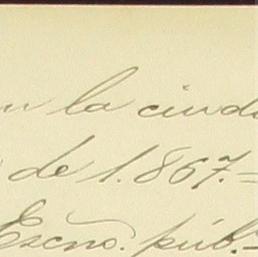 en la ciuda
de 1.867.=
Escno. púb.=